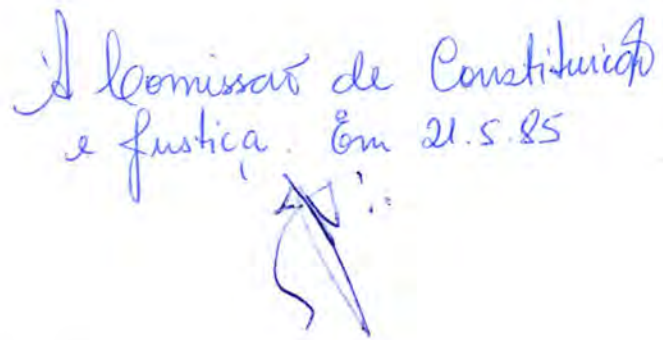 À Comissão de Constituição
e Justiça. Em 21.5.85